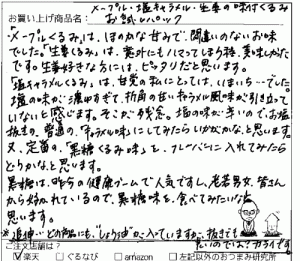 メープル・塩キャラメル・生姜の味付くるみ
お買い上げ商品名： お試しパック
「メープルくるみ」は、ほのかな甘みで、間違いのないお味
でした。「生姜くるみ」は、意外にもハマってしまう程、美味しかった
です。生姜好きな方には、ピッタリだと思います。
「塩キャラメルくるみ」は、甘党の私にとっては、いまいち…でした。
塩の味が濃すぎて、折角の甘いキャラメル風味が引き立って
いないと感じます。そこが残念。塩の味が辛いのでお塩
抜きの、普通の、「キャラメル味」にしてみたらいかがかなと思います。
又、定番の、「黒糖くるみ味」も、フレーバーに入れてみたら
どうかなと思います。
黒糖は、昨今の健康ブームで人気ですし、老若男女、皆さん
から好かれているので、黒糖味を、食べてみたいなと
思います。
※追伸…どの商品にも、“しょう油”が入っていますが、抜きでも
良いのでは？カライです。
ご注文店舗は？
楽天 ぐるなび amazon 左記以外のおつまみ研究所